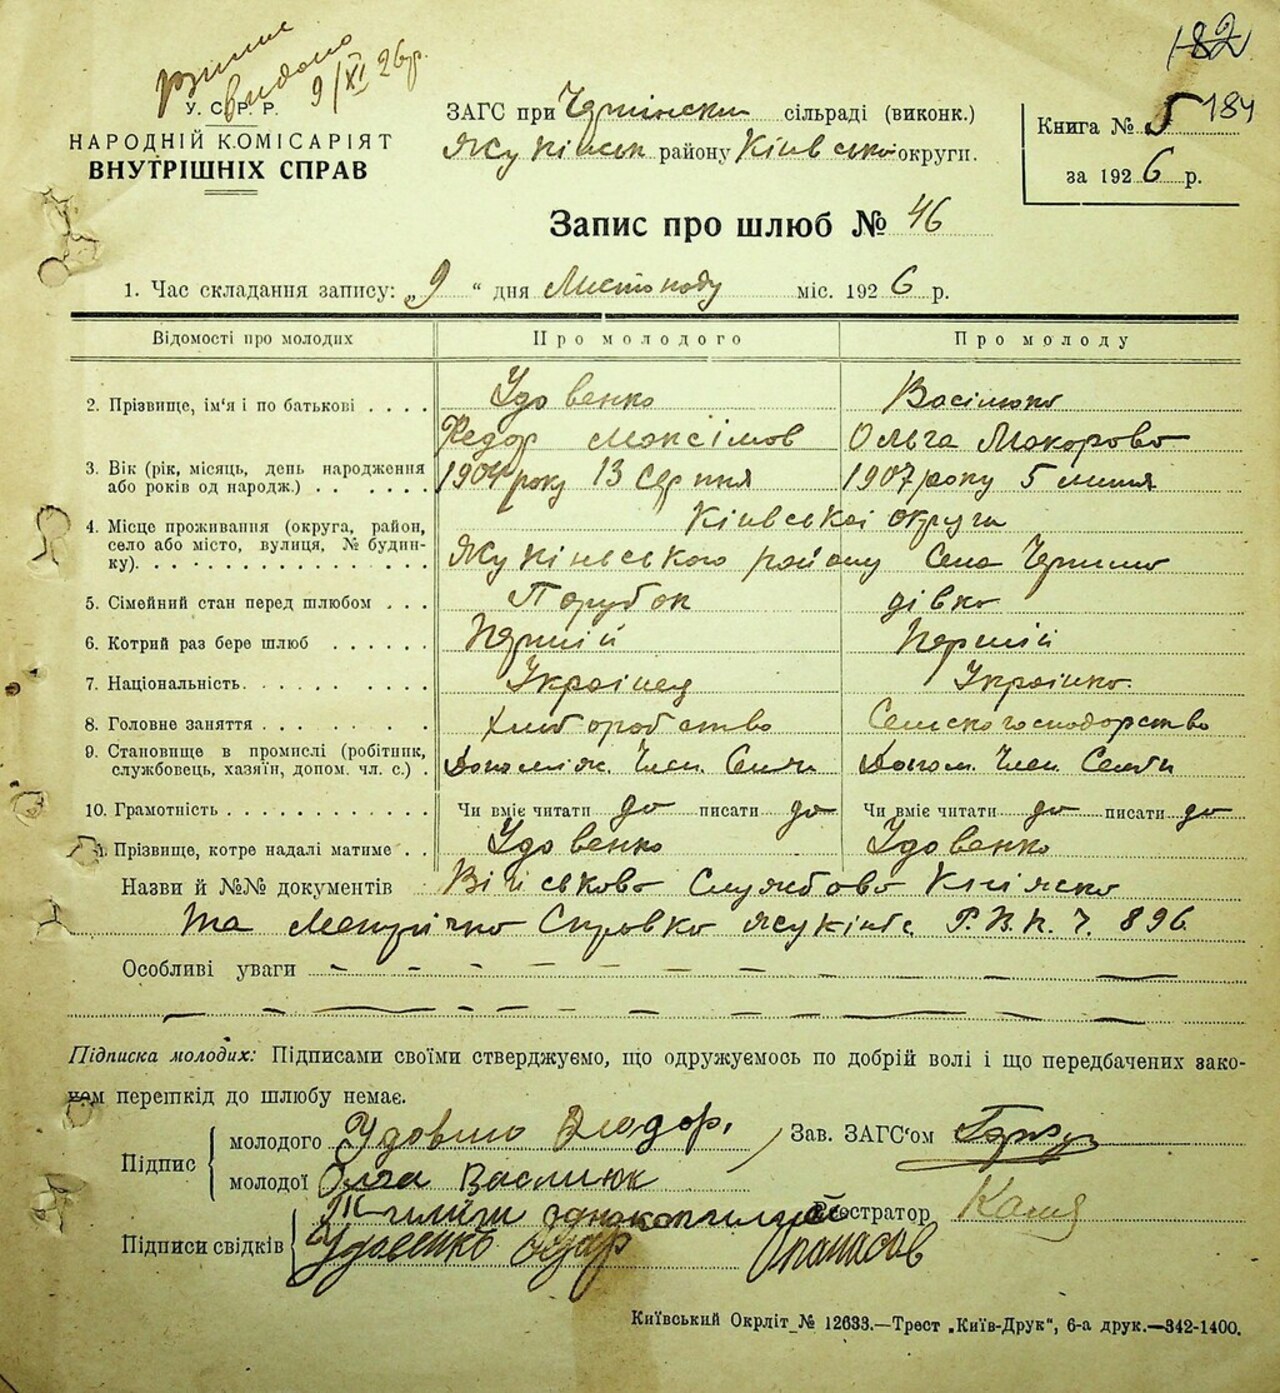 182
видано
9/XI 26р.
У. С. Р. Р.
НАРОДНІЙ КОМІСАРІЯТ
ВНУТРІШНІХ СПРАВ
ЗАГС при сільраді (виконк.)
району Київської округи.
Книга № 5 184
за 1926 р.
Запис про шлюб № 46
1. Час складання запису: „9 “ дня Листопаду міс. 1926 р.
Відомості про молодих Про молодого Про молоду
2. Прізвище, ім‘я і по батькові . . . . Удовенко Васілюко
Федор Максімов Ольга Макарова
3. Вік (рік, місяць, день народження або років од народж.) . . . . . . 1904 року 13 Серпня 1907 року 5 липня
4. Місце проживання (округа, район, село або місто, вулиця, № будинку). . . . . . . . . . . . . . . Київської округи
району Села
5. Сімейний стан перед шлюбом . . . Парубок дівка
6. Котрий раз бере шлюб . . . . . . Перший Перший
7. Національність. . . . . . . . . . Українец Українка.
8. Головне заняття . . . . . . . . . Хліборобство Сельско господарство
9. Становище в промислі (робітник, службовець, хазяїн, допом. чл. с.) . Допоміж. Член. Семьи Допом. Член. Семьи
10. Грамотність . . . . . . . . . . . . Чи вміє читати да писати да Чи вміє читати да писати да
11. Прізвище, котре надалі матиме . . Удовенко Удовенко
Назви й №№ документів Військова Службова Книжка
та Метрична Справка Р.В.К. Ч. 896.
Особливі уваги — — — — — — — — — —
Підписка молодих: Підписами своїми стверджуємо, що одружуємось по добрій волі і що передбачених зако-
ном перешкід до шлюбу немає.
Підпис молодого Зав. ЗАГС‘ом
молодої Олга Васлиюк
Підписи свідків Реєстратор
Удовенко
Опанасов
Київський Окрліт № 12633.—Трест „Київ-Друк“, 6-а друк.—342-1400.